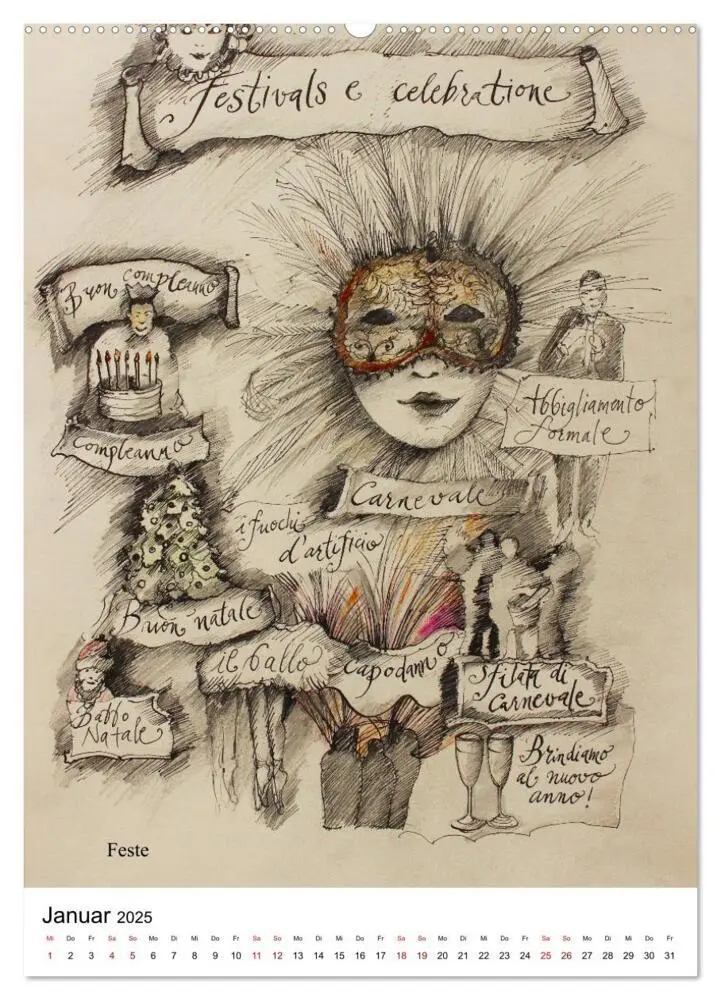 Festivals e celebratione
Buon compleanno
Compleanno
Abbigliamento
formale
Carnevale
i fuochi
d'artificio
Buon natale
il ballo
Capodanno
Sfilata di
Carnevale
Babbo
Natale
Brindiamo
al nuovo
anno!
Feste
Januar 2025
Mi Do Fr Sa So Mo Di Mi Do Fr Sa So Mo Di Mi Do Fr Sa So Mo Di Mi Do Fr Sa So Mo Di Mi Do Fr
1 2 3 4 5 6 7 8 9 10 11 12 13 14 15 16 17 18 19 20 21 22 23 24 25 26 27 28 29 30 31